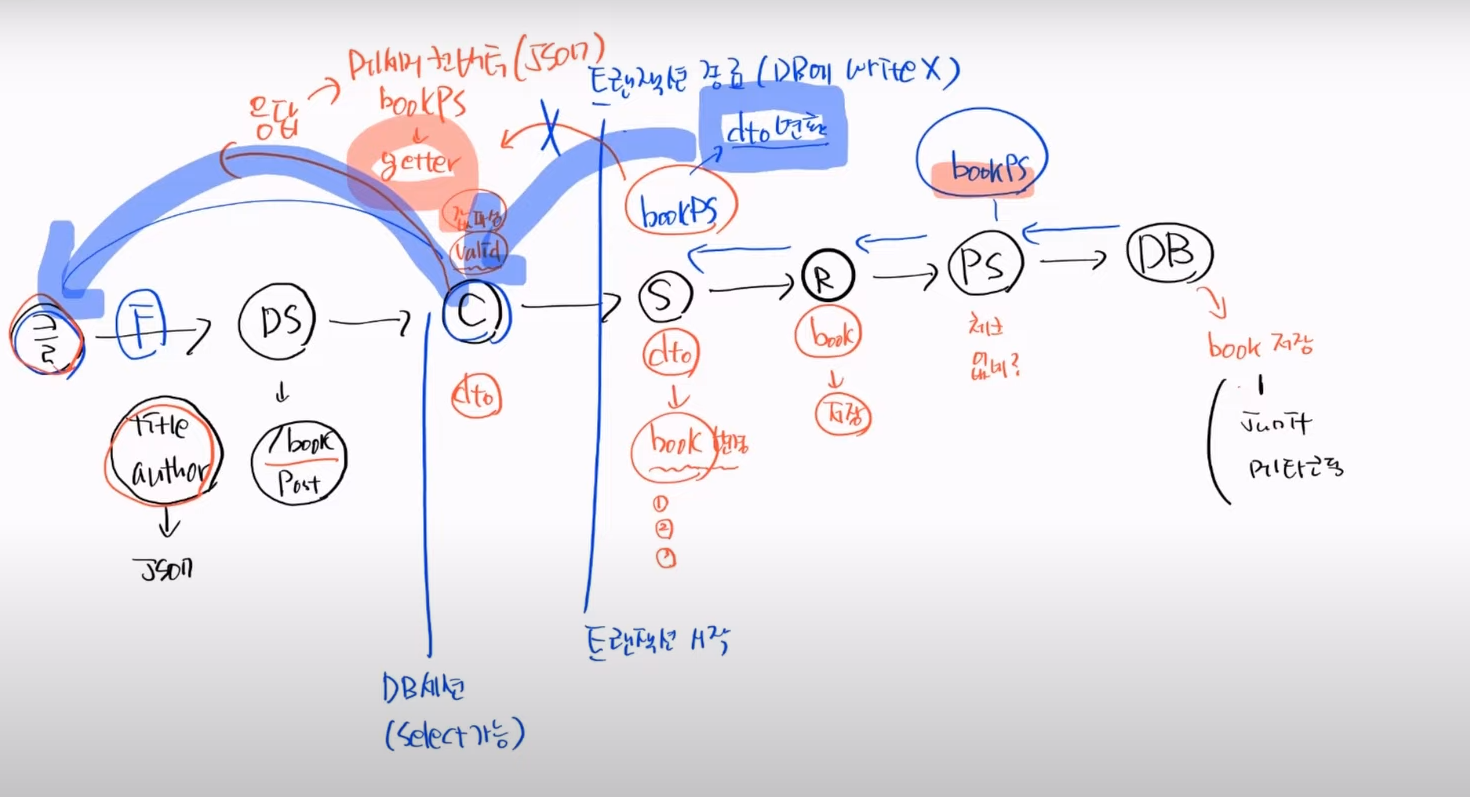 메세지 컨버터 (JSON)
응답
bookPS
getter
트랜잭션 종료 (DB에 write X)
dto 변환
bookPS
bookPS
valid
클라
F
DS
C
S
R
PS
DB
title
author
JSON
/book
Post
dto
dto
book 변환
①
②
book
저장
체크
없네?
book 저장
1
Junit
메타코딩
트랜잭션 시작
DB세션
(Select가능)